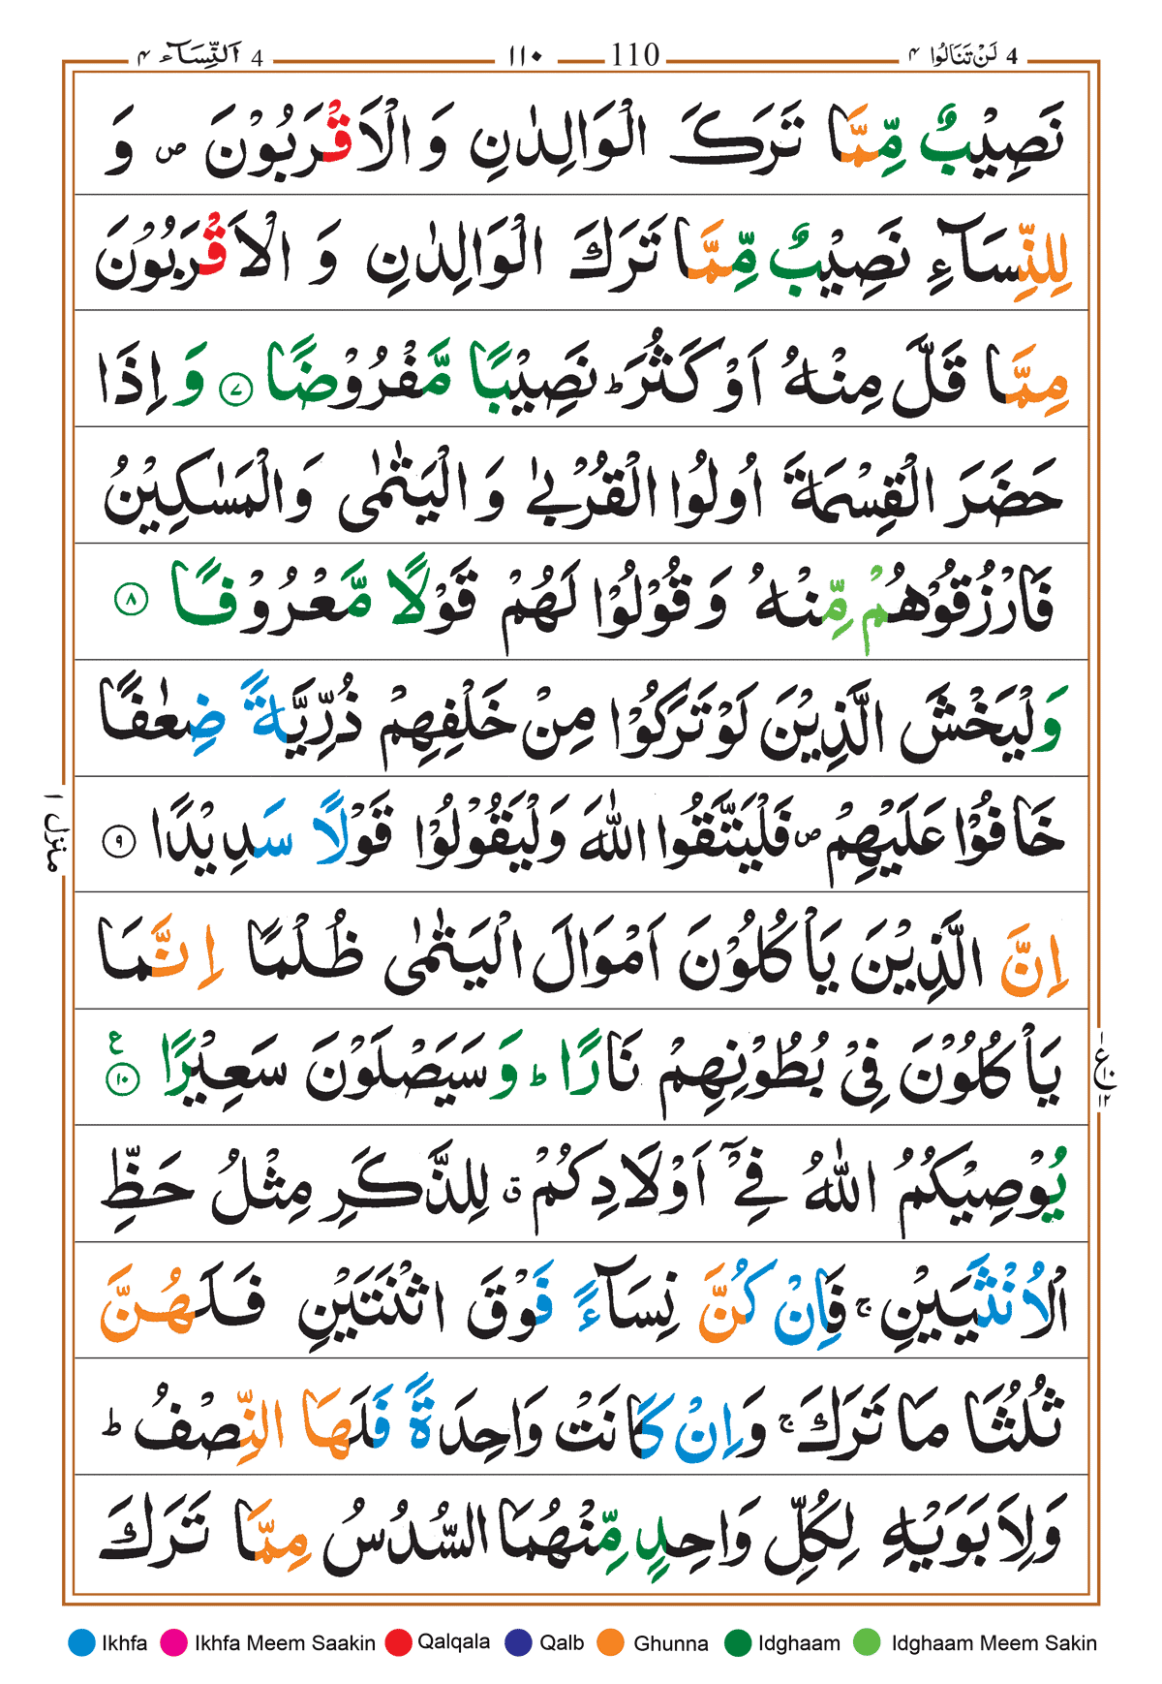 4 لَنْ تَنَالُوا ۴ 110 ۱۱۰ 4 اَلنِّسَآء ۴
نَصِيْبٌ مِّمَّا تَرَكَ الْوَالِدٰنِ وَ الْاَقْرَبُوْنَ ص وَ
لِلنِّسَآءِ نَصِيْبٌ مِّمَّا تَرَكَ الْوَالِدٰنِ وَ الْاَقْرَبُوْنَ
مِمَّا قَلَّ مِنْهُ اَوْ كَثُرَ ط نَصِيْبًا مَّفْرُوْضًا ۷ وَ اِذَا
حَضَرَ الْقِسْمَةَ اُولُوا الْقُرْبٰى وَ الْيَتٰمٰى وَالْمَسٰكِيْنُ
فَارْزُقُوْهُمْ مِّنْهُ وَ قُوْلُوْا لَهُمْ قَوْلًا مَّعْرُوْفًا ۸
وَلْيَخْشَ الَّذِيْنَ لَوْ تَرَكُوْا مِنْ خَلْفِهِمْ ذُرِّيَّةً ضِعٰفًا
خَافُوْا عَلَيْهِمْ ص فَلْيَتَّقُوا اللّٰهَ وَلْيَقُوْلُوْا قَوْلًا سَدِيْدًا ۹
اِنَّ الَّذِيْنَ يَاْكُلُوْنَ اَمْوَالَ الْيَتٰمٰى ظُلْمًا اِنَّمَا
يَاْكُلُوْنَ فِىْ بُطُوْنِهِمْ نَارًا ط وَ سَيَصْلَوْنَ سَعِيْرًا ۱۰ ع
يُوْصِيْكُمُ اللّٰهُ فِىْٓ اَوْلَادِكُمْ ق لِلذَّكَرِ مِثْلُ حَظِّ
الْاُنْثَيَيْنِ ج فَاِنْ كُنَّ نِسَآءً فَوْقَ اثْنَتَيْنِ فَلَهُنَّ
ثُلُثَا مَا تَرَكَ ج وَاِنْ كَانَتْ وَاحِدَةً فَلَهَا النِّصْفُ ط
وَلِاَبَوَيْهِ لِكُلِّ وَاحِدٍ مِّنْهُمَا السُّدُسُ مِمَّا تَرَكَ
منزل ۱
ع ۱ ۱۰ ۱۲
Ikhfa Ikhfa Meem Saakin Qalqala Qalb Ghunna Idghaam Idghaam Meem Sakin